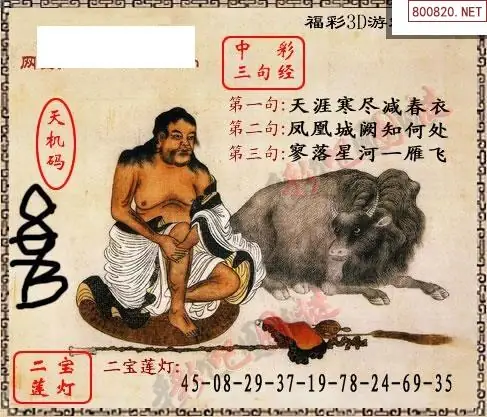 福彩3D游
800820.NET
中彩
三句经
第一句:天涯寒尽减春衣
第二句:凤凰城阙知何处
第三句:寥落星河一雁飞
天机码
二宝
莲灯
二宝莲灯:
45-08-29-37-19-78-24-69-35